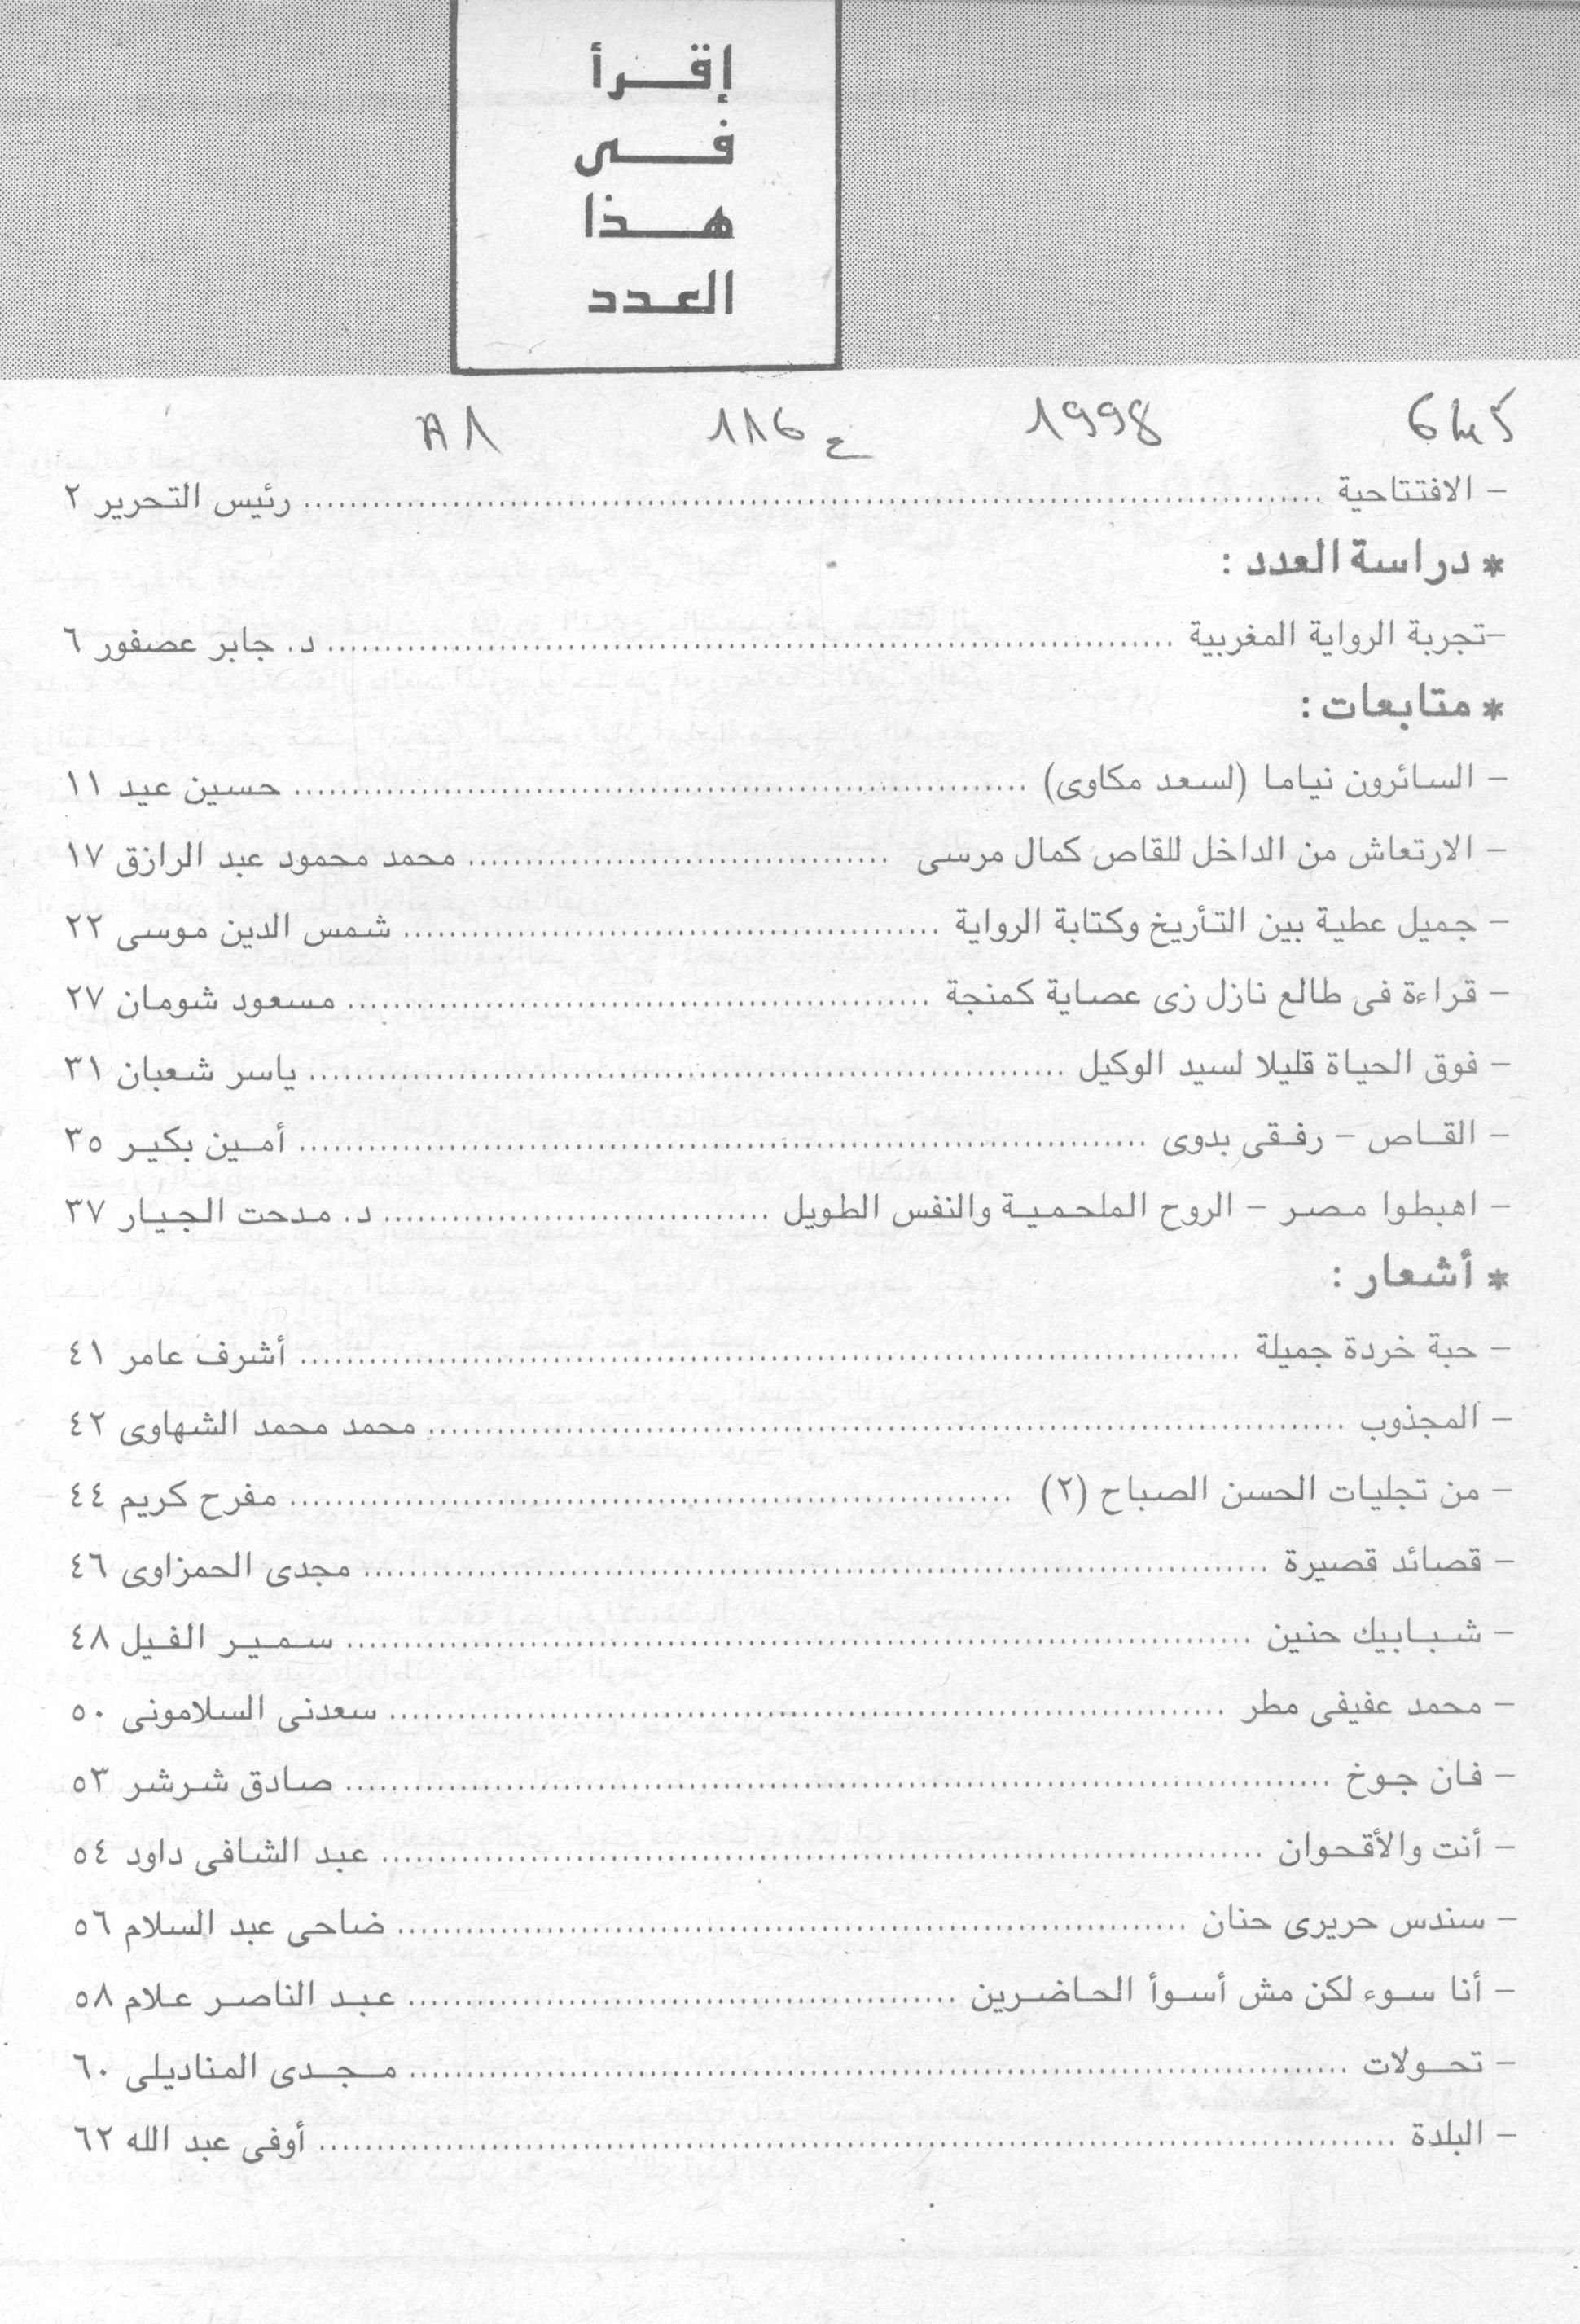 إقرأ
فى
هذا
العدد
1998 ع 116
- الافتتاحية ........ رئيس التحرير ٢
* دراسة العدد :
-تجربة الرواية المغربية ........ د. جابر عصفور ٦
* متابعات :
- السائرون نياما (لسعد مكاوى) ........ حسين عيد ١١
- الارتعاش من الداخل للقاص كمال مرسى ........ محمد محمود عبد الرازق ١٧
- جميل عطية بين التأريخ وكتابة الرواية ........ شمس الدين موسى ٢٢
- قراءة فى طالع نازل زى عصاية كمنجة ........ مسعود شومان ٢٧
- فوق الحياة قليلا لسيد الوكيل ........ ياسر شعبان ٣١
- القاص - رفقى بدوى ........ أمين بكير ٣٥
- اهبطوا مصر - الروح الملحمية والنفس الطويل ........ د. مدحت الجيار ٣٧
* أشعار :
- حبة خردة جميلة ........ أشرف عامر ٤١
- المجذوب ........ محمد محمد الشهاوى ٤٢
- من تجليات الحسن الصباح (٢) ........ مفرح كريم ٤٤
- قصائد قصيرة ........ مجدى الحمزاوى ٤٦
- شبابيك حنين ........ سمير الفيل ٤٨
- محمد عفيفى مطر ........ سعدنى السلامونى ٥٠
- فان جوخ ........ صادق شرشر ٥٣
- أنت والأقحوان ........ عبد الشافى داود ٥٤
- سندس حريرى حنان ........ ضاحى عبد السلام ٥٦
- أنا سوء لكن مش أسوأ الحاضرين ........ عبد الناصر علام ٥٨
- تحولات ........ مجدى المناديلى ٦٠
- البلدة ........ أوفى عبد الله ٦٢